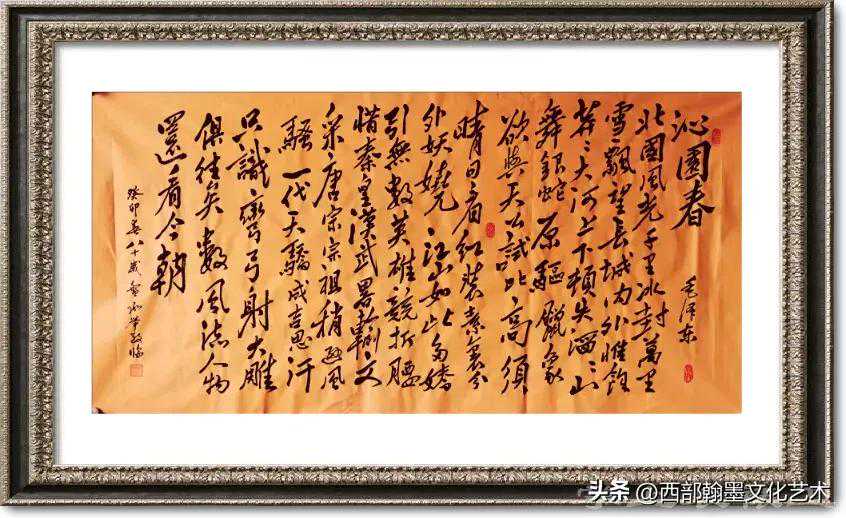 沁園春
毛泽东
北國風光千里冰封萬里
雪飄望長城内外惟餘
莽〻大河上下頓失滔〻山
舞銀蛇原驅臘象
欲與天公試比高須
晴日看红裝素裹分
外妖嬈江山如此多嬌
引無數英雄競折腰
惜秦皇漢武畧輸文
采唐宗宋祖稍遜風
騷一代天驕成吉思汗
只識彎弓射大雕
俱往矣數風流人物
還看今朝
癸卯春八十歲
头条 @西部翰墨文化艺术